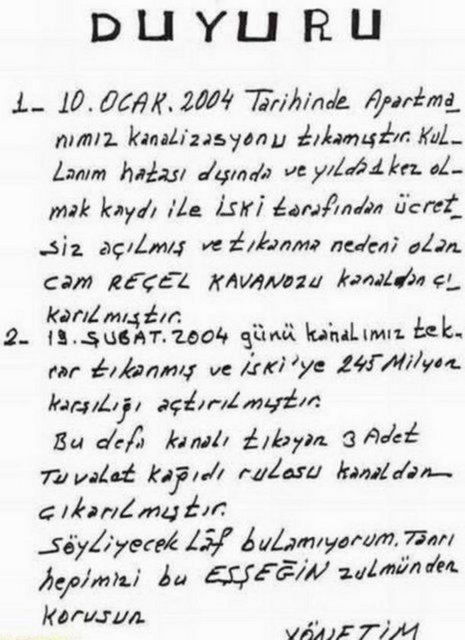 DUYURU
1- 10.OCAK.2004 Tarihinde Apartma
nımız kanalizasyonu tıkamıştır. Kul-
Lanım hatası dışında ve yılda 1 kez ol-
mak kaydı ile İSKİ tarafından ücret_
siz açılmış ve tıkanma nedeni olan
cam REÇEL KAVANOZU kanaldan çı_
karılmıştır.
2- 19.ŞUBAT.2004 günü kanalımız tek-
rar tıkanmış ve İSKİ'ye 245 Milyon
karşılığı açtırılmıştır.
Bu defa kanalı tıkayan 3 Adet
Tuvalet kağıdı rulosu kanaldan
çıkarılmıştır.
Söyliyecek Lâf bulamıyorum. Tanrı
hepimizi bu EŞŞEĞİN zulmünden
korusun
YÖNETİM